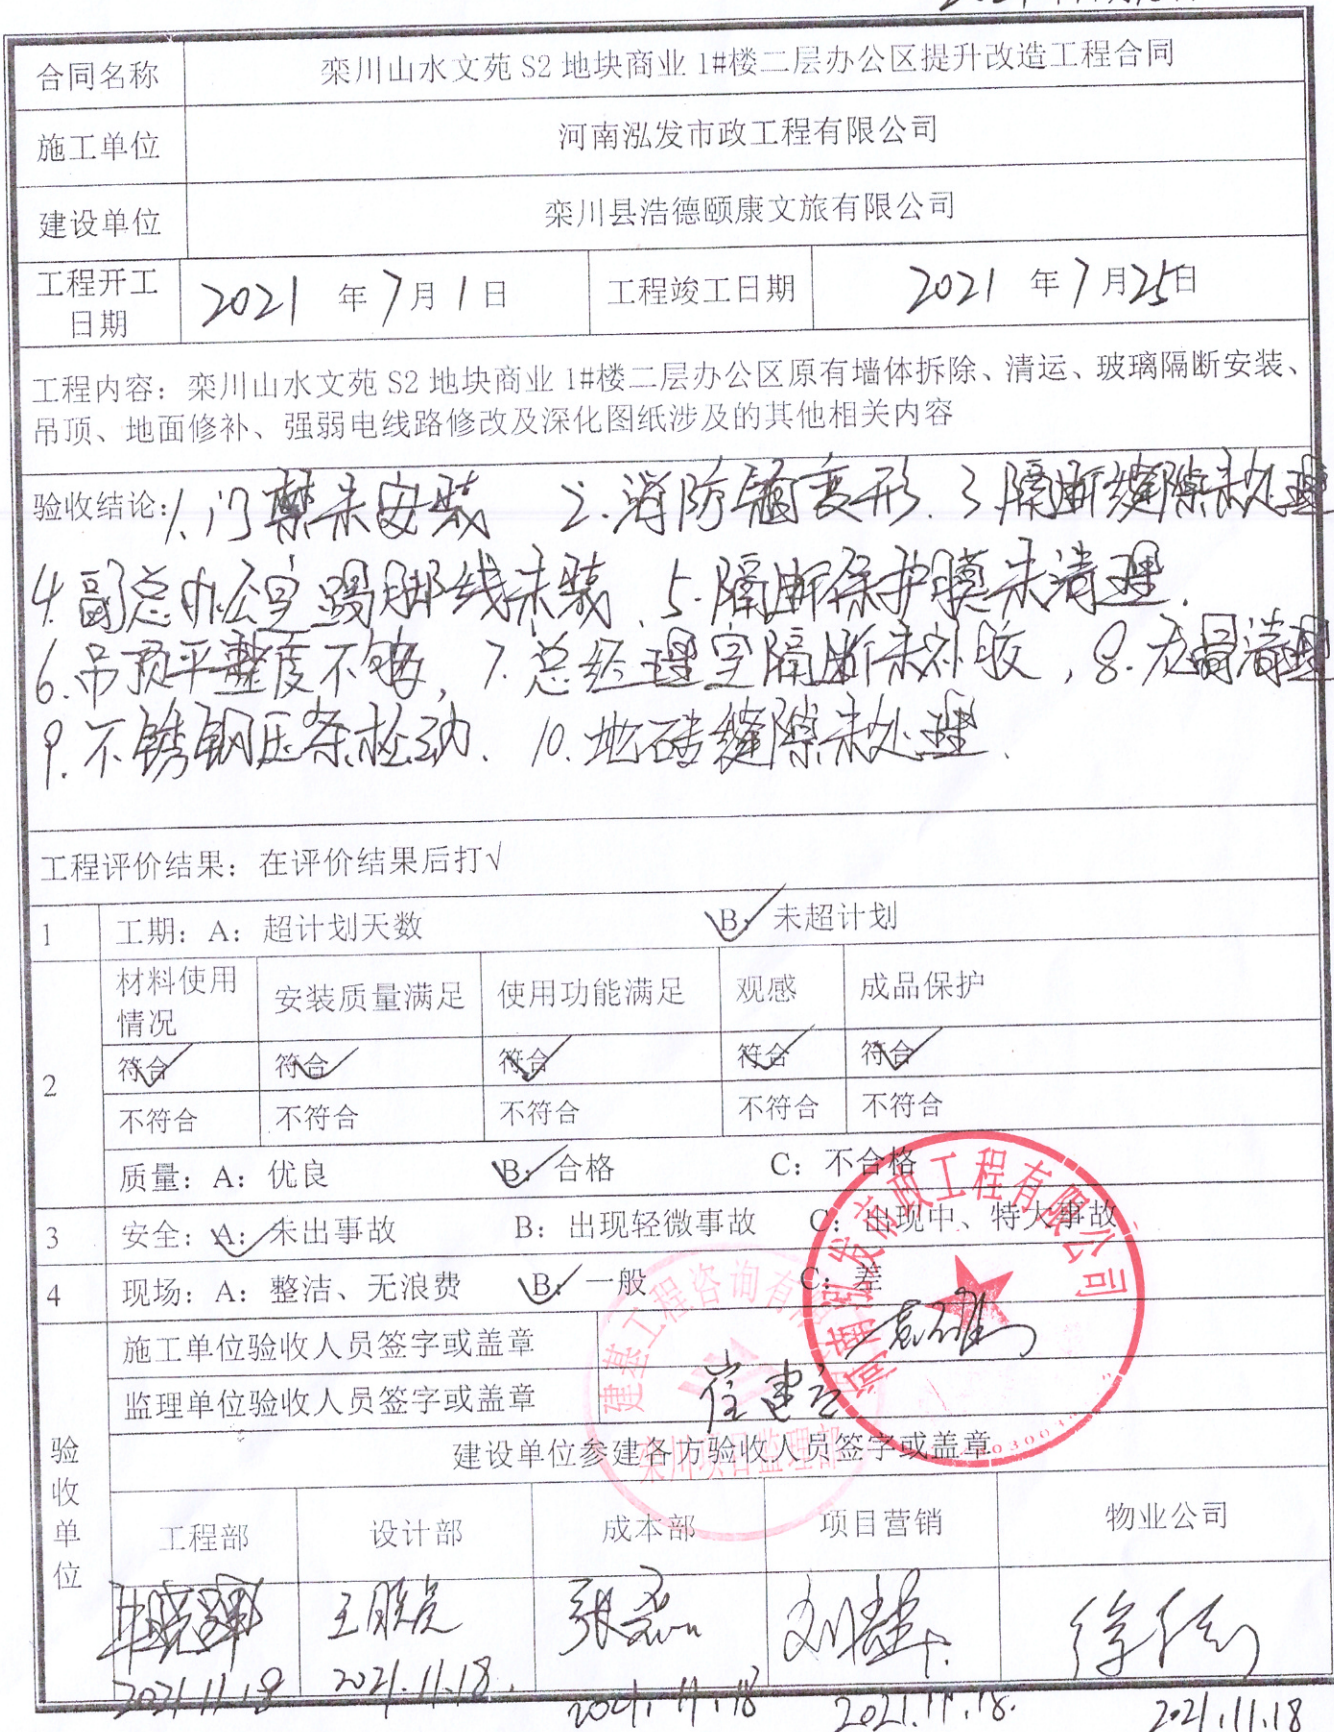 合同名称 栾川山水文苑 S2 地块商业 1#楼二层办公区提升改造工程合同
施工单位 河南泓发市政工程有限公司
建设单位 栾川县浩德颐康文旅有限公司
工程开工日期 2021 年 7 月 1 日 工程竣工日期 2021 年 7 月 25 日
工程内容：栾川山水文苑 S2 地块商业 1#楼二层办公区原有墙体拆除、清运、玻璃隔断安装、
吊顶、地面修补、强弱电线路修改及深化图纸涉及的其他相关内容
验收结论：1.门禁未安装 2.消防箱变形. 3.隔断缝隙未处理
4.副总办公室踢脚线未装. 5.隔断保护膜未清理.
6.吊顶平整度不够, 7.总经理室隔断未补胶, 8.清理
9.不锈钢压条松动. 10.地砖缝隙未处理.
工程评价结果：在评价结果后打√
1 工期：A：超计划天数 B：√ 未超计划
材料使用情况 安装质量满足 使用功能满足 观感 成品保护
2 符合√ 符合√ 符合√ 符合√ 符合√
不符合 不符合 不符合 不符合 不符合
质量：A：优良 B：√ 合格 C：不合格
3 安全：A：√ 未出事故 B：出现轻微事故 C：出现中、特大事故
4 现场：A：整洁、无浪费 B：√ 一般 C：差
验收单位
施工单位验收人员签字或盖章
河南泓发市政工程有限公司
监理单位验收人员签字或盖章 崔建立
建基工程咨询有
栾川项目监理部
建设单位参建各方验收人员签字或盖章
工程部 设计部 成本部 项目营销 物业公司
王胜亮
2021.11.18 2021.11.18. 2021.11.18 2021.11.18. 2021.11.18